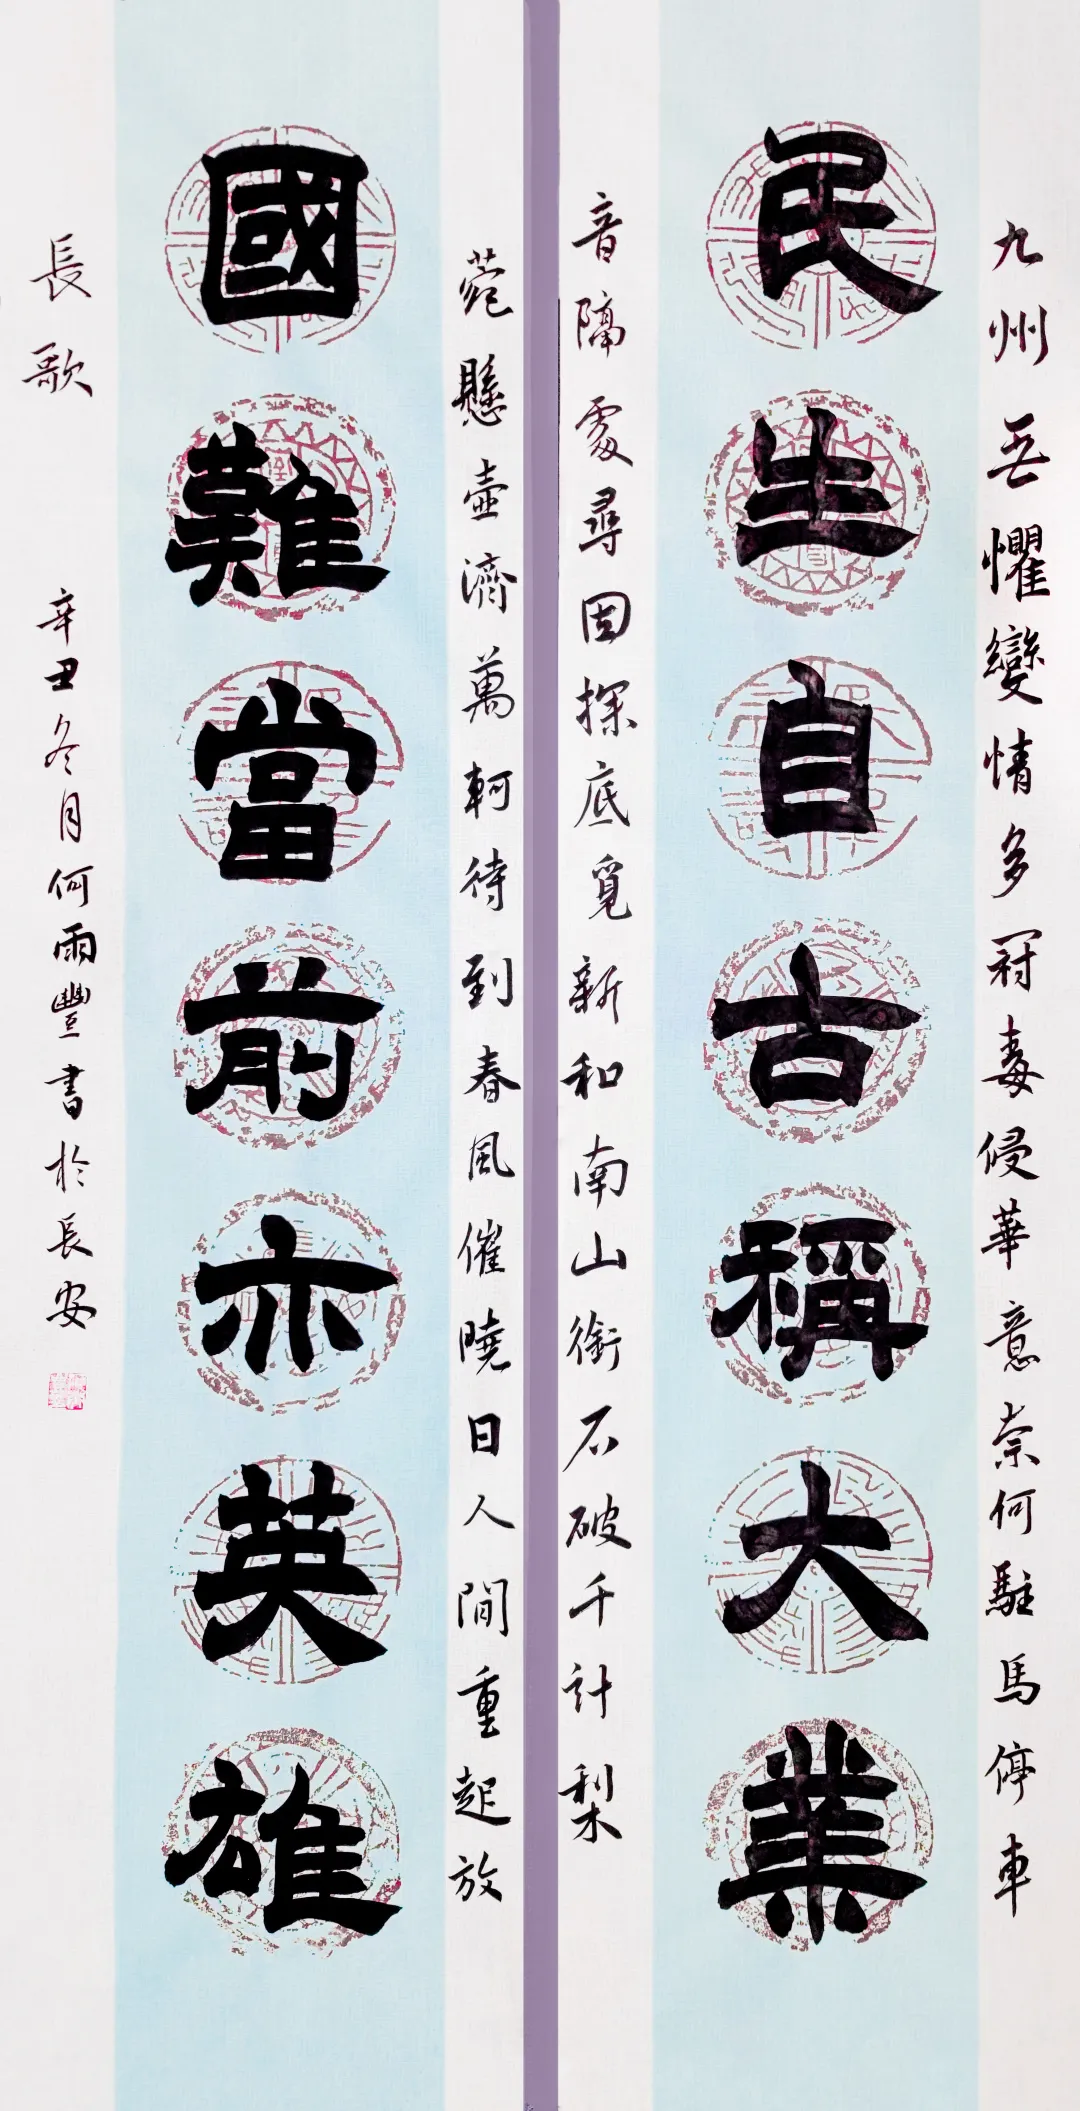 九州无懼變情多冠毒侵華意奈何駐馬停車
民生自古稱大業
音隔處尋因探底覓新和南山銜石破千計梨
菀懸壺濟萬軻待到春風催曉日人間重起放
國難當前亦英雄
長歌
辛丑冬月何雨豐書於長安